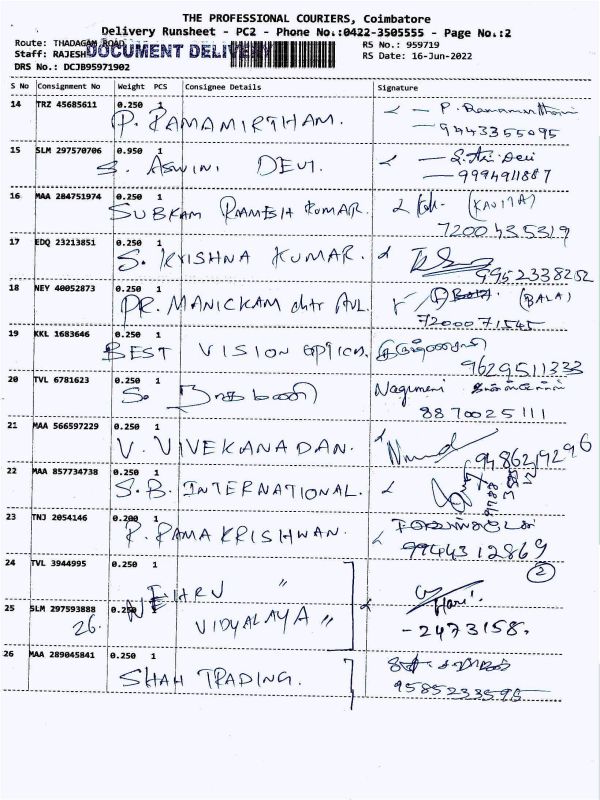 THE PROFESSIONAL COURIERS, Coimbatore
Delivery Runsheet - PC2 - Phone No.:0422-3505555 - Page No.:2
Route: THADAGAM ROAD RS No.: 959719
Staff: RAJESH DOCUMENT DELIVERY RS Date: 16-Jun-2022
DRS No.: DCJB95971902
S No Consignment No Weight PCS Consignee Details Signature
14 TRZ 45685611 0.250 1
P. RAMAMIRTHAM. P. Ramamirtham
9443355095
15 SLM 297570706 0.950 1
S. ASWINI DEVI. 9994911887
16 MAA 284751974 0.250 1
SUBRAM RAMESH KUMAR. (KAVITA)
7200435319
17 EDQ 23213851 0.250 1
S. KRISHNA KUMAR.
9952338252
18 NEY 40052873 0.250 1
DR. MANICKAM chtr AVL. (BALA)
7200071545
19 KKL 1683646 0.250 1
BEST VISION OPTICS.
9629511333
20 TVL 6781623 0.250 1
S. நாகமணி Nagumani
8870025111
21 MAA 566597229 0.250 1
V. VIVEKANADAN. 9486219296
22 MAA 857734738 0.250 1
S.B. INTERNATIONAL.
23 TNJ 2054146 0.200 1
R. RAMAKRISHNAN.
9944312869
24 TVL 3944995 0.250 1 2
NEHRU " Hari.
25 SLM 297593888 0.250 1
26. VIDYALAYA " - 2473158.
26 MAA 289045841 0.250 1
SHAH TRADING.
9585233596